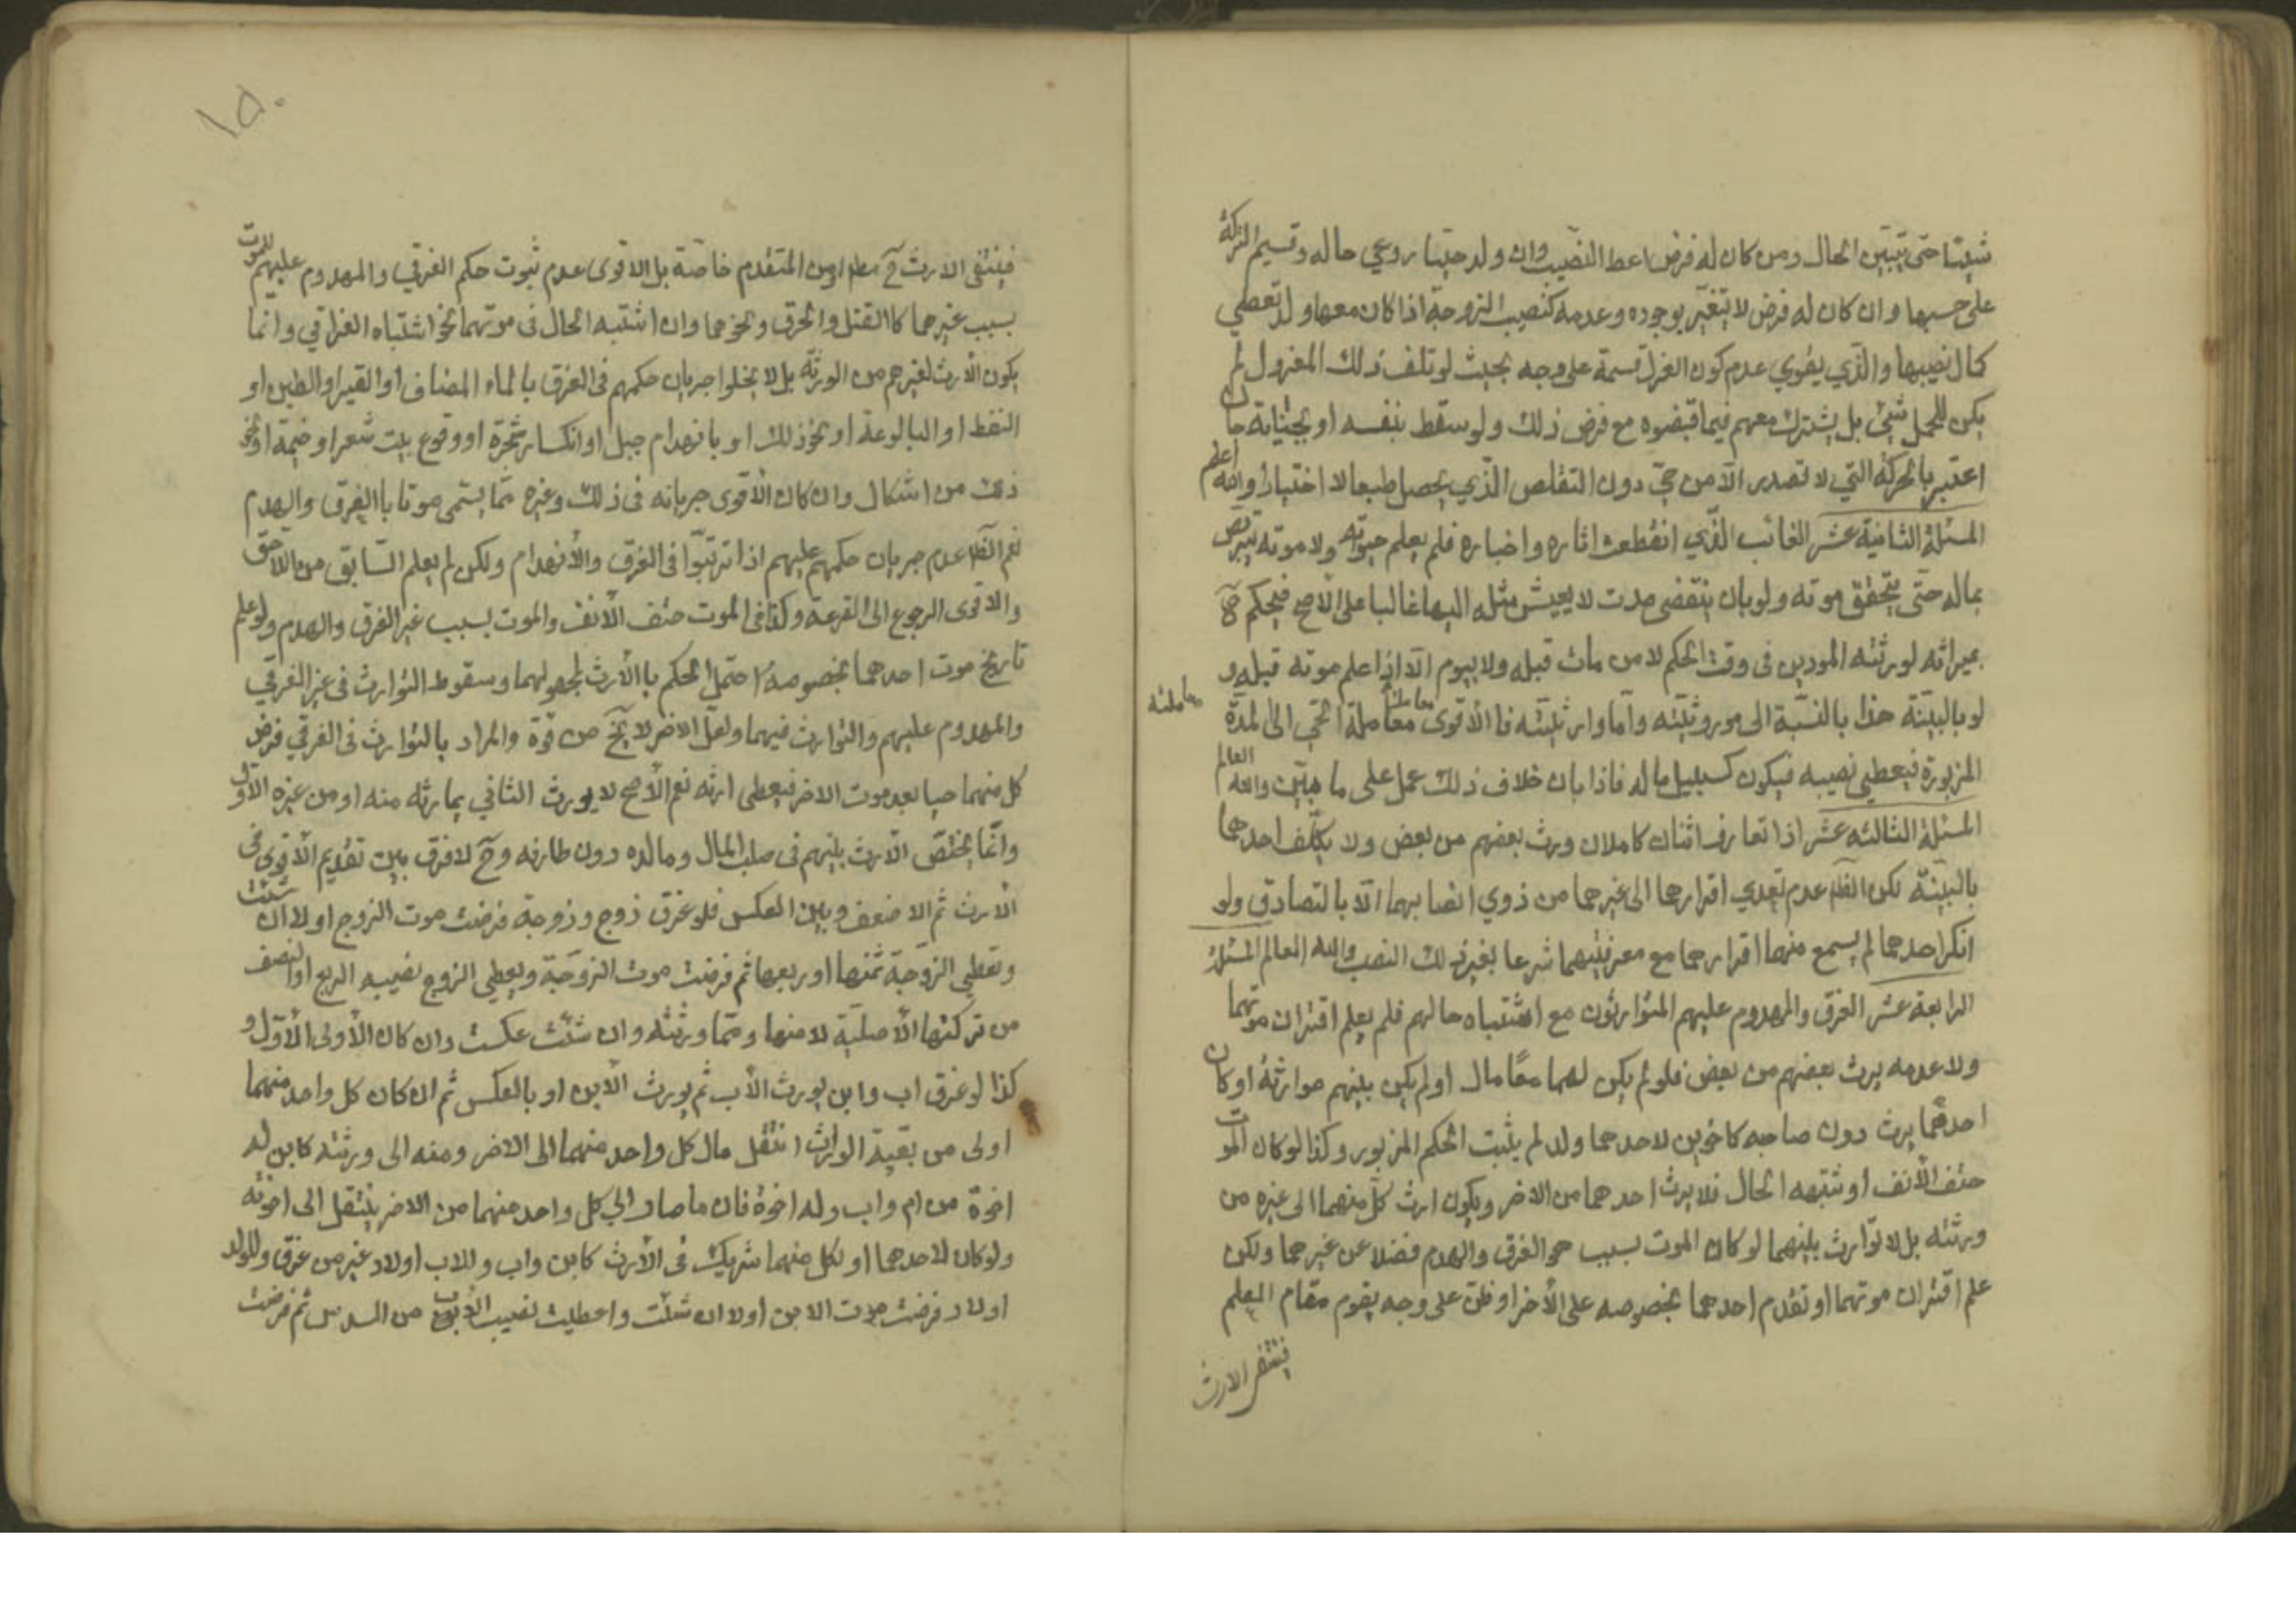 شيئا حتى يتبين الحال ومن كان له فرض اعط النصيب وان ولد حيا روعي حاله وقسيم التركة
على حسبها وان كان له فرض لا يتغير بوجوده وعدمه كنصيب الزوجة اذا كان معها ولد تعطي
كمال نصيبها والذي يقوي عدم كون العزل قسمة على وجه بحيث لو تلف ذلك المعزول لم
يكن للحمل شئ بل يشترك معهم فيما قبضوه مع فرض ذلك ولو سقط بنفسه او بجناية جان
اعتبر بالحركة التي لا تصدر الا من حي دون التقلص الذي يحصل طبعا لا اختيارا والله اعلم
المسئلة الثانية عشر الغائب الذي انقطعت اثاره واخباره فلم يعلم حيوته ولا موته يتربص
بماله حتى يتحقق موته ولو بان ينقضى مدت لا يعيش مثله اليها غالبا على الاصح فيحكم ح
بميراثه لورثته الموجودين فى وقت الحكم لا من مات قبله ولا بيوم الا اذا علم موته قبله و
لو بالبينة هذا بالنسبة الى موروثيته واما وارثيته فالاقوى معاملة الحي الى المدة
معاملته
المزبورة فيعطي نصيبه فيكون كسبيل ماله فاذا بان خلاف ذلك عمل على ما يتبين والله العالم
المسئلة الثالثه عشر اذا تعارف اثنان كاملان ورث بعضهم من بعض ولا يكلف احدهما
بالبينة لكن الظ عدم تعدي اقرارهما الى غيرهما من ذوي انسابهما الا بالتصادق ولو
انكر احدهما لم يسمع منهما اقرارهما مع معرفيتهما شرعا بغير ذلك النسب والله العالم المسئلة
الرابعة عشر الغرق والمهدوم عليهم المتوارثون مع اشتباه حالهم فلم يعلم اقتران موتهما
ولا عدمه يرث بعضهم من بعض فلو لم يكن لهما معا مال او لم يكن بينهم موارثة او كان
احدهما يرث دون صاحبه كاخوين لاحدهما ولد لم يثبت الحكم المزبور وكذا لو كان الموت
حتف الانف او شتبهه الحال فلا يرث احدهما من الاخر ويكون ارث كل منهما الى غيره من
ورثته بل لا توارث بينهما لو كان الموت بسبب هو الغرق والهدم فضلا عن غيرهما ولكن
علم اقتران موتهما او تقدم احدهما بخصوصه على الاخر او ظن على وجه يقوم مقام العلم
فينتفى الارث
١٥٠
فينتفى الارث ح من المتقدم خاصة بل الاقوى عدم ثبوت حكم الغرقي والمهدوم عليهم للموت
بسبب غيرهما كالقتل والحرق ونحوهما وان اشتبه الحال فى موتهما نحو اشتباه الغراقي وانما
يكون الارث لغيرهم من الورثة بل لا يخلوا جريان حكمهم فى الغرق بالماء المضاف او القير او الطين او
النفط او البالوعة او نحو ذلك او بانهدام جبل او انكسار شجرة او وقوع بيت شعر او خيمة او نحو
ذلك من اشكال وان كان الاقوى جريانه فى ذلك وغيره مما يسمى موتا باالغرق والهدم
نعم الظ عدم جريان حكمهم عليهم اذا ترتبوا فى الغرق والانهدام ولكن لم يعلم السابق من اللاحق
والاقوى الرجوع الى القرعة وكذا فى الموت حتف الانف والموت بسبب غير الغرق والهدم ولو علم
تاريخ موت احدهما بخصوصه احتمل الحكم باالارث لمجهولهما وسقوط التوارث فى غير الغرقي
والمهدوم عليهم والتوارث فيهما ولعل الاخر لا يخ من قوة والمراد بالتوارث فى الغرقي فرض
كل منهما حيا بعد موت الاخر فيعطى ارثه نعم الاصح لا يورث الثاني بما رثه منه او من غيره الاول
وانما يختص الارث بينهم فى صلب المال ومالده دون طارفه وح لا فرق بين تقديم الاقوى فى
الارث ثم الاضعف وبين العكس فلو غرق زوج وزوجة فرضت موت الزوج اولا ان شئت
وتعطي الزوجة ثمنها او ربعها ثم فرضت موت الزوجة ويعطي الزوج نصيبه الربع او النصف
من تركتها الاصلية لا منها ومما ورثته وان شئت عكست وان كان الاولى الاول و
كذا لو غرق اب وابن يورث الاب ثم يورث الابن او بالعكس ثم ان كان كل واحد منهما
اولى من بقية الوارث انتقل مال كل واحد منهما الى الاخر ومنه الى ورثته كابن له
اخوة من ام واب وله اخوة فان ما صار الي كل واحد منهما من الاخر ينتقل الى اخوته
ولو كان لاحدهما او لكل منهما شريك فى الارث كابن واب وللاب اولاد غير من غرق وللولد
اولاد فرضت موت الابن اولا ان شئت واعطيت نصيب الاب من السدس ثم فرضت